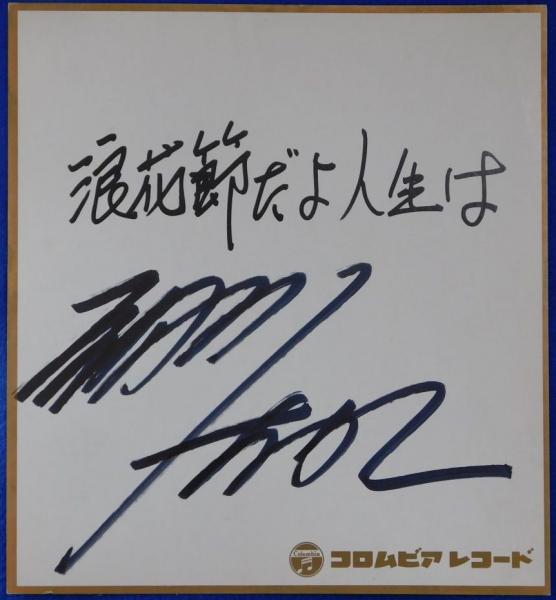 浪花節だよ人生は
Columbia
コロムビア レコード